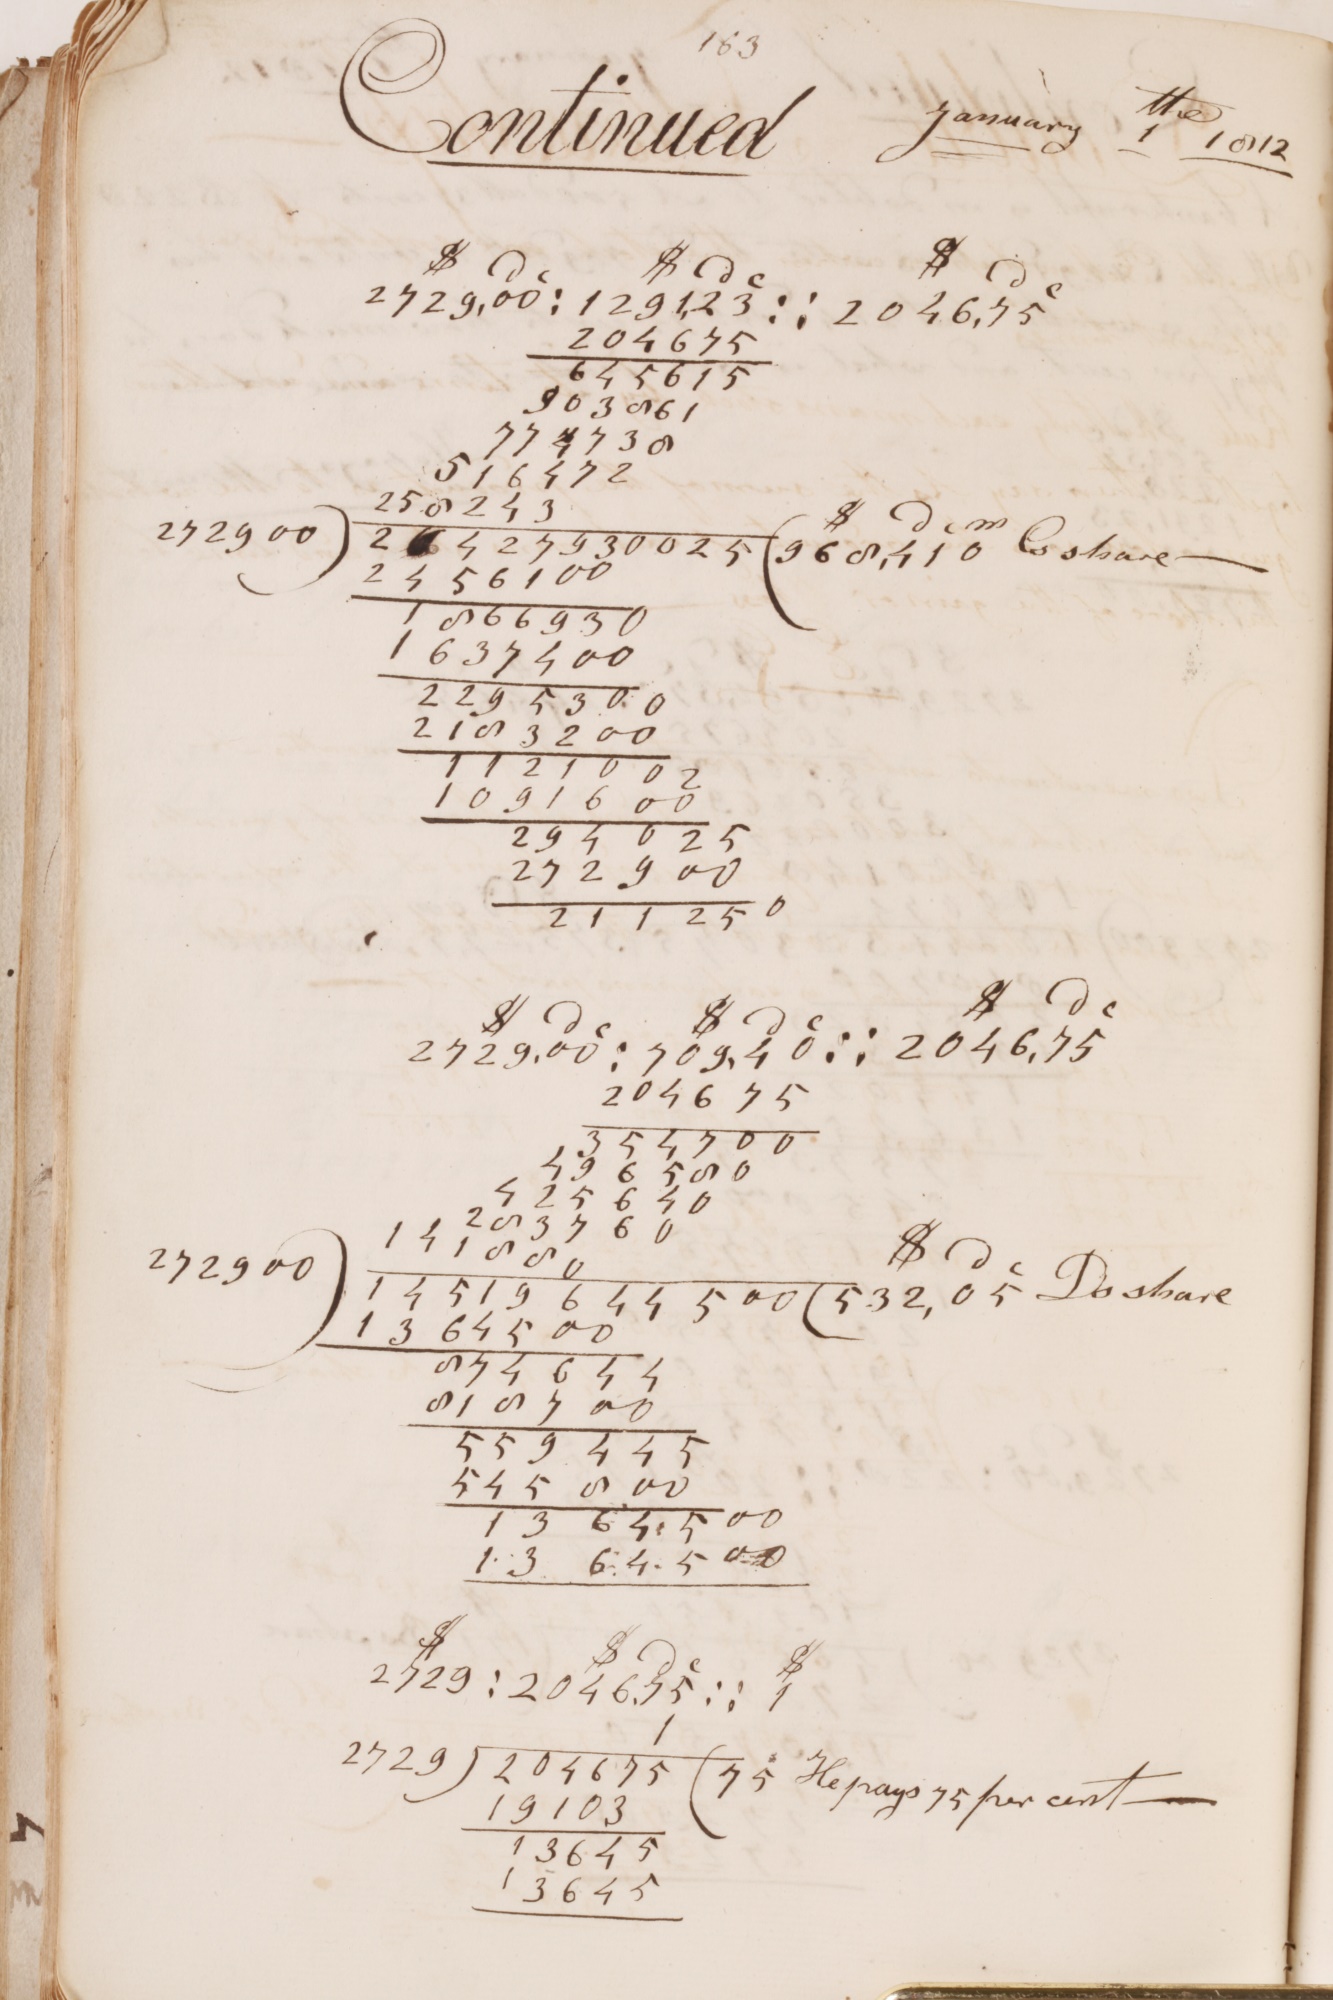 163
Continued January 1 the 1812
$ d c $ d c $ d c
2729,00 : 1291,23 :: 2046,75
204675
645615
903861
774738
516472
258243
272900 ) 264279300025 ( 968,410 Cs share
$ d c m
2456100
1866930
1637400
2295300
2183200
1121002
1091600
294025
272900
211250
$ d c $ d c $ d c
2729,00 : 709,40 :: 2046,75
204675
354700
496580
425640
283760
141880
$ d c
272900 ) 14519644500 ( 532,05 Ds share
1364500
874644
818700
559445
545800
1364500
1364500
$ $ d c $
2729 : 2046,75 :: 1
1
2729 ) 204675 ( 75 He pays 75 per cent
19103
13645
13645